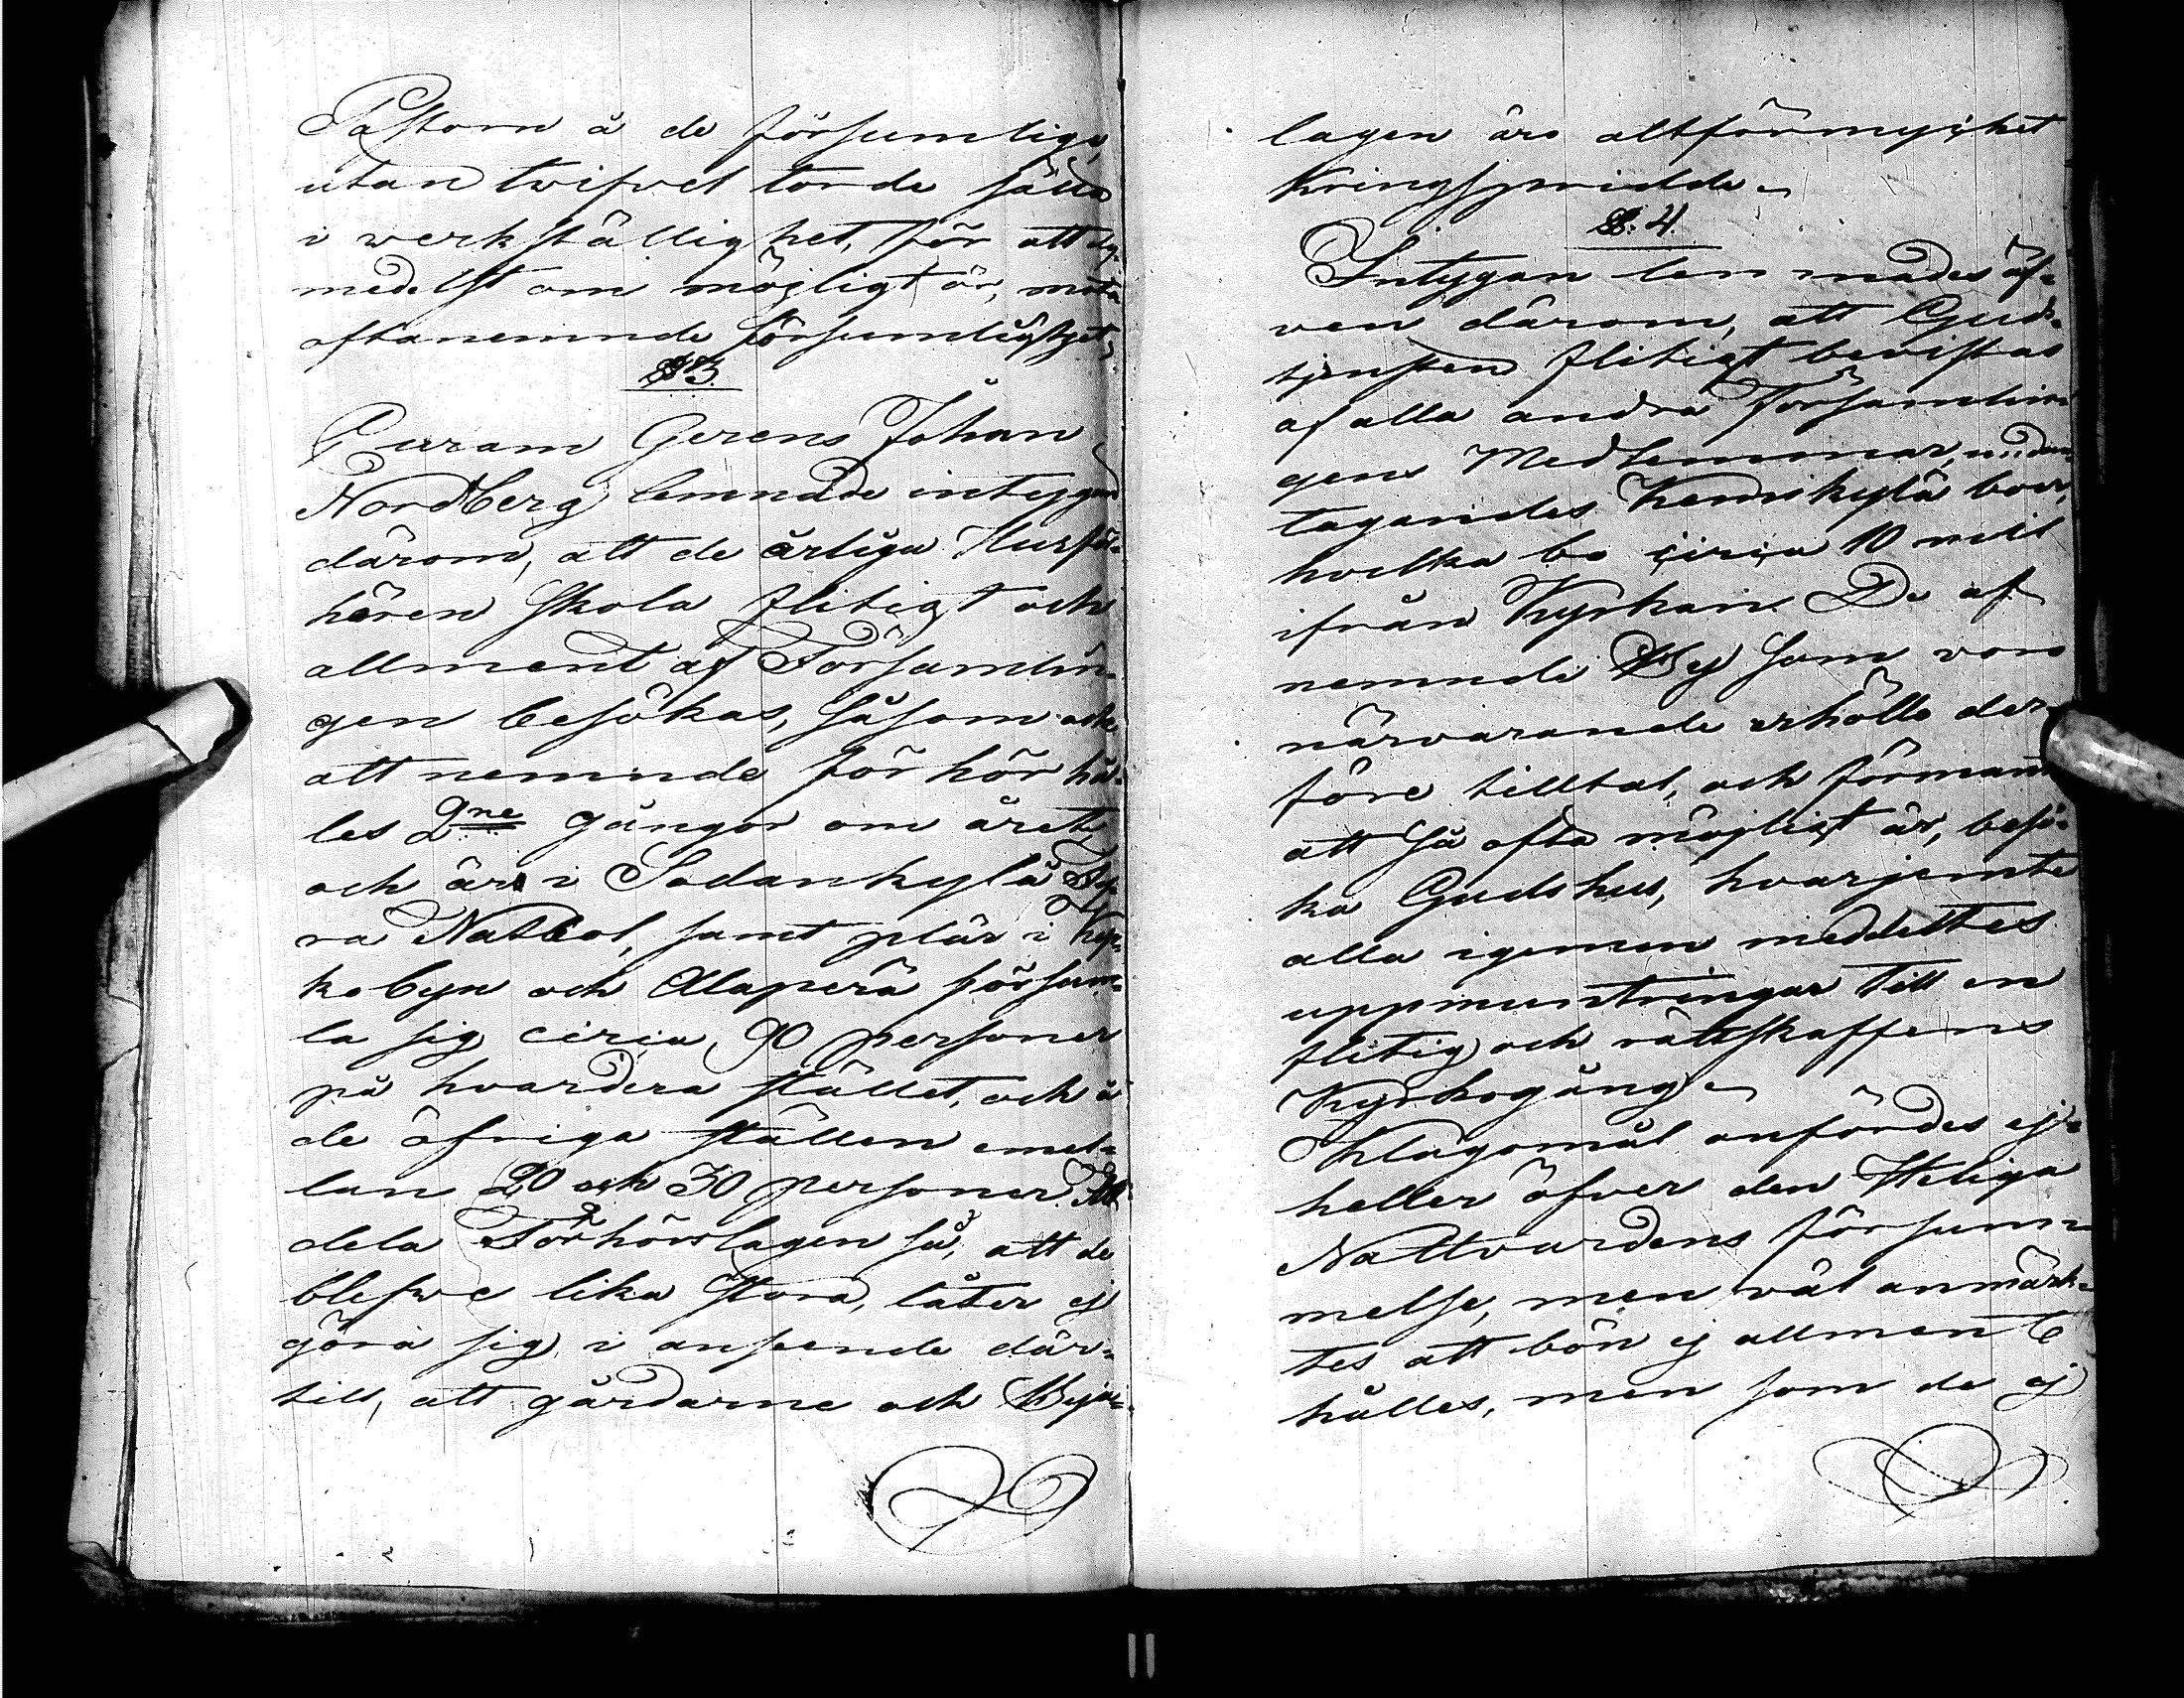 Pastorn å de försumliga,
utan twifvel torde sälla
i werkställighet, för att dy-
medelst om möjligt är, mota
oftanemnde försumlighet,
§ 3.
Curam Gerens Johan
Nordberg lemnade intygan
därom, att de årliga Husför-
hören skola flitigt och
allment af Församlin-
gen besökas, såsom ock
att nemnde förhör hål-
les 2ne gångor om året
och är i Sodankylä
ra Natbol, samt plär i Kyr-
kobyn och Alaperä försam-
la sig circa 90 personer
på hvardera stället, och å
de öfriga ställen emel-
lan 20 och 30 personer. All
dela Förhörslagen så, att de
blefwe lika stora, låter ej
göra sig i anseende där-
till, att gårdarne och Byar-
lagen äro altförmycket
kringspridde.
§. 4.
Intygan lemnades äf-
ven därom, att Guds-
tjensten flitigt bevistas
af alla andra Församlin
gens Medlemmar, undan-
tagandes Kemikylä boer,
hvilka bo circa 10 mil
ifrån Kyrkan. De af
nemnde By som voro
närvarande erhöllo der-
före tilltal, och förman
att så ofta möjligt är, besö-
ka Guds hus, hvarjemte
alla igemen meddeltes
uppmuntringar till en
flitig och rättskaffens
Kyrkogång.
Klagomål anfördes ej-
heller öfver den Heliga
Nattvardens försum-
melse, men väl anmärk-
tes att bön ej allment
hålles, men som de ej
11